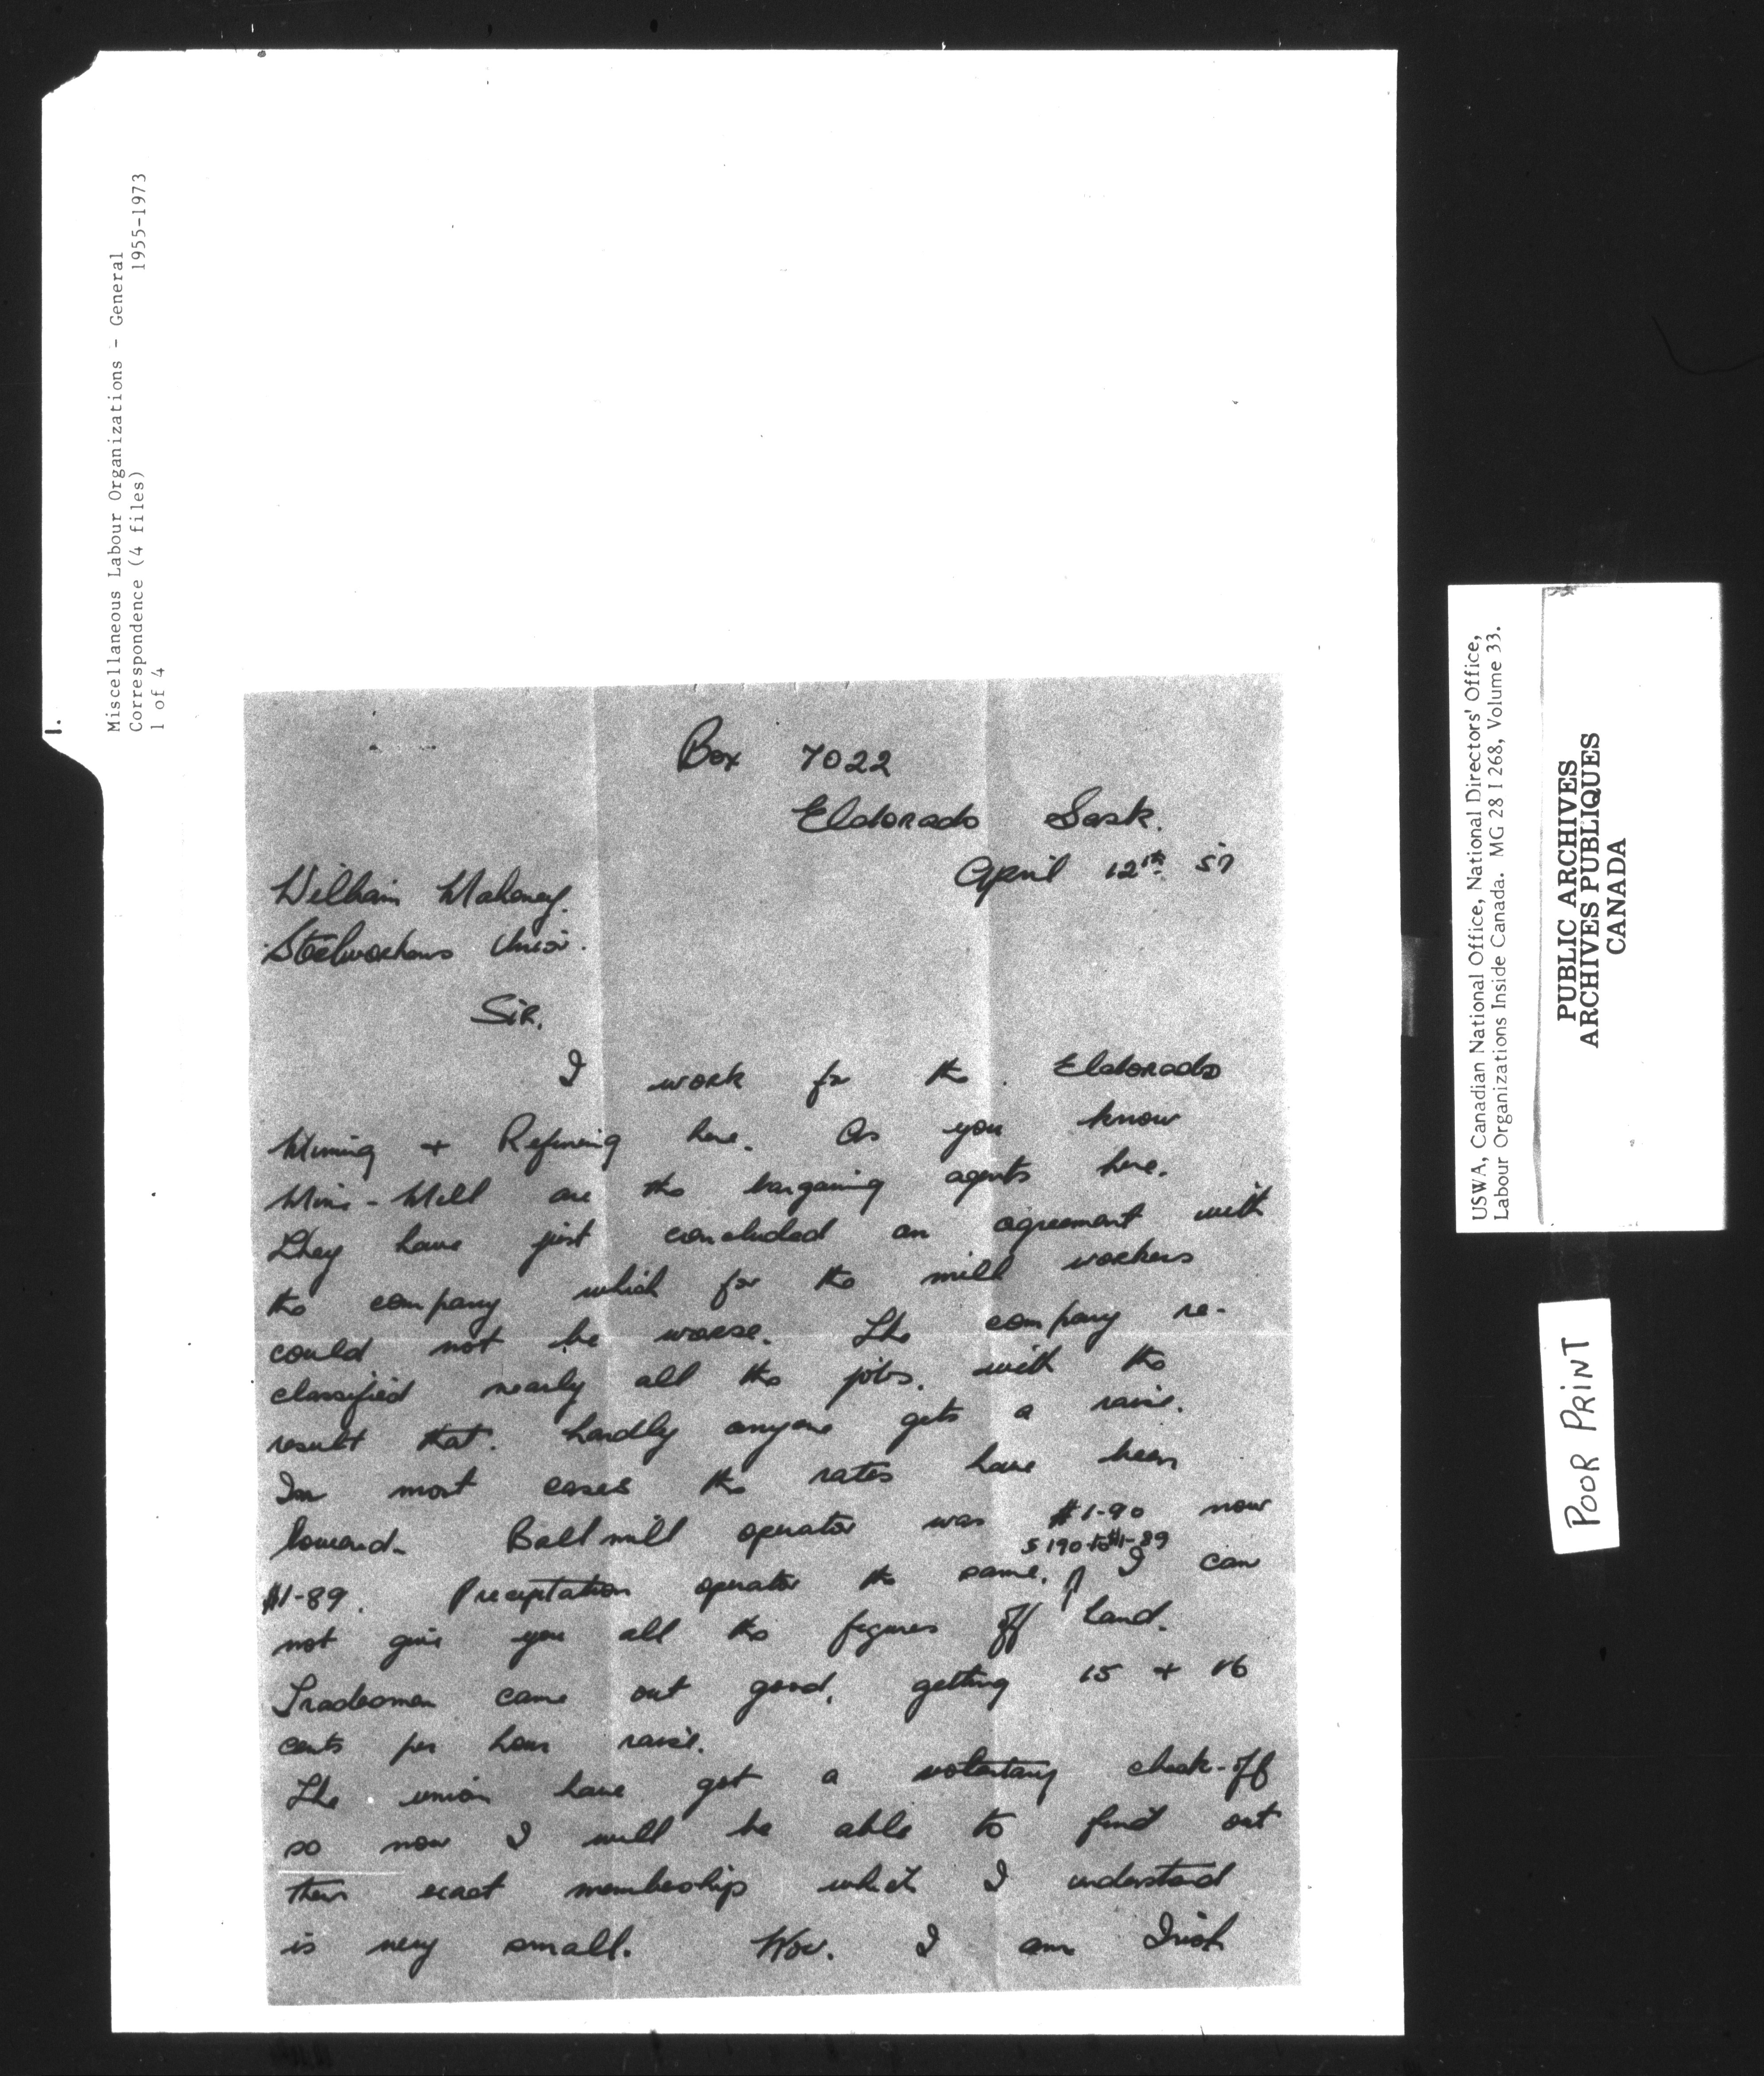 1.
Miscellaneous Labour Organizations - General
Correspondence (4 files) 1955-1973
1 of 4
Box 7022
Eldorado Sask.
April 12th. 57
William Mahoney.
Steelworkers Union.
Sir,
I work for the Eldorado
Mining + Refining here. As you know
Mine-Mill are the bargaining agents here.
They have just concluded an agreement with
the company which for the mill workers
could not be worse. The company re-
classified nearly all the jobs, with the
result that hardly anyone gets a raise.
In most cases the rates have been
lowered. Ball mill operator was $1-90 now
$1-89. Preciptation operator the same. I can
$190 to $1-89
not give you all the figures off hand.
Tradesmen came out good, getting 15 + 16
cents per hour raise.
The union have got a voluntary check-off
so now I will be able to find out
their exact membership which I understand
is very small. Now. I am Irish
USWA, Canadian National Office, National Directors' Office,
Labour Organizations Inside Canada. MG 28 I 268, Volume 33.
PUBLIC ARCHIVES
ARCHIVES PUBLIQUES
CANADA
POOR PRINT